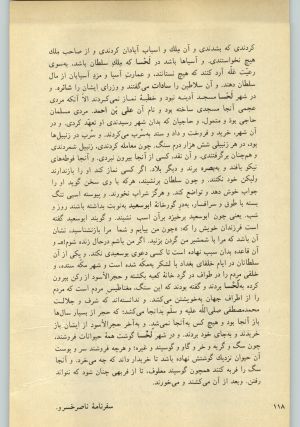 کردندی که بشدندی و آن ملک و اسباب آبادان کردندی و از صاحب ملک
هیچ نخواستندی. و آسیاها باشد در لحسا که ملک سلطان باشد، به‌سوی
رعیت غله آرد کنند که هیچ نستانند. و عمارت آسیا و مزد آسیابان از مال
سلطان دهند. و آن سلاطین را سادات می‌گفتند و وزرای ایشان را شائره. و
در شهر لحسا مسجد آدینه نبود و خطبه و نماز نمی‌کردند الا آنکه مردی
عجمی آنجا مسجدی ساخته بود و نام آن علی بن احمد. مردی مسلمان
حاجی بود و متمول، و حاجیان که بدان شهر رسیدندی او تعهد کردی. و در
آن شهر، خرید و فروخت و داد و ستد به‌سرب می‌کردند. و سرب در زنبیل‌ها
بود، در هر زنبیلی شش هزار درم سنگ. چون معامله کردندی، زنبیل شمردندی
و همچنان برگرفتندی. و آن نقد، کسی از آنجا بیرون نبردی. و آنجا فوطه‌های
نیکو بافند و به‌بصره برند و دیگر بلاد. اگر کسی نماز کند او را بازندارند
ولیکن خود نکنند. و چون سلطان برنشیند، هرکه با وی سخن گوید او را
جواب خوش دهد و تواضع کند. و هرگز شراب نخورند. و پیوسته اسبی تنگ
بسته با طوق و سرافسار، به‌در گورخانهٔ ابوسعید به‌نوبت بداشته باشند روز و
شب. یعنی چون ابوسعید برخیزد برآن اسب نشیند. و گویند ابوسعید گفته
است فرزندان خویش را که: «چون من بیایم و شما مرا بازنشناسید، نشان
آن باشد که مرا با شمشیر من گردن بزنید. اگر من باشم درحال زنده شوم.»و
آن قاعده بدان سبب نهاده است تا کسی دعوی بوسعیدی نکند. و یکی از آن
سلطانان در ایام خلفای بغداد با لشکر به‌مکه شده است و شهر مکه ستده، و
خلقی مردم را در طواف در گرد خانهٔ کعبه بکشته و حجرالاسود از رکن بیرون
کرده به‌لحسا بردند و گفته بودند که این سنگ، مغناطیس مردم است که مردم
را از اطراف جهان به‌خویشتن می‌کشد. و ندانسته‌اند که شرف و جلالت
محمدمصطفی صلی‌الله علیه و سلم بدانجا می‌کشد؛ که حجر از بسیار سال‌ها
باز آنجا بود و هیچ کس به‌آنجا نمی‌شد. و به‌آخر حجرالاسود از ایشان باز
خریدند و به‌جای خود بردند. و در شهر لحسا گوشت همهٔ حیوانات فروشند،
چون سگ و گربه و خر و گاو و گوسپند و غیره؛ و هرچه فروشند سر و پوست
آن حیوان نزدیک گوشتش نهاده باشد تا خریدار داند که چه می‌خرد. و آنجا
سگ را فربه کنند همچون گوسپند معلوف، تا از فربهی چنان شود که نتواند
رفتن. وبعد از آن می‌کشند و می‌خورند.
۱۱۸
سفرنامهٔ ناصرخسرو.